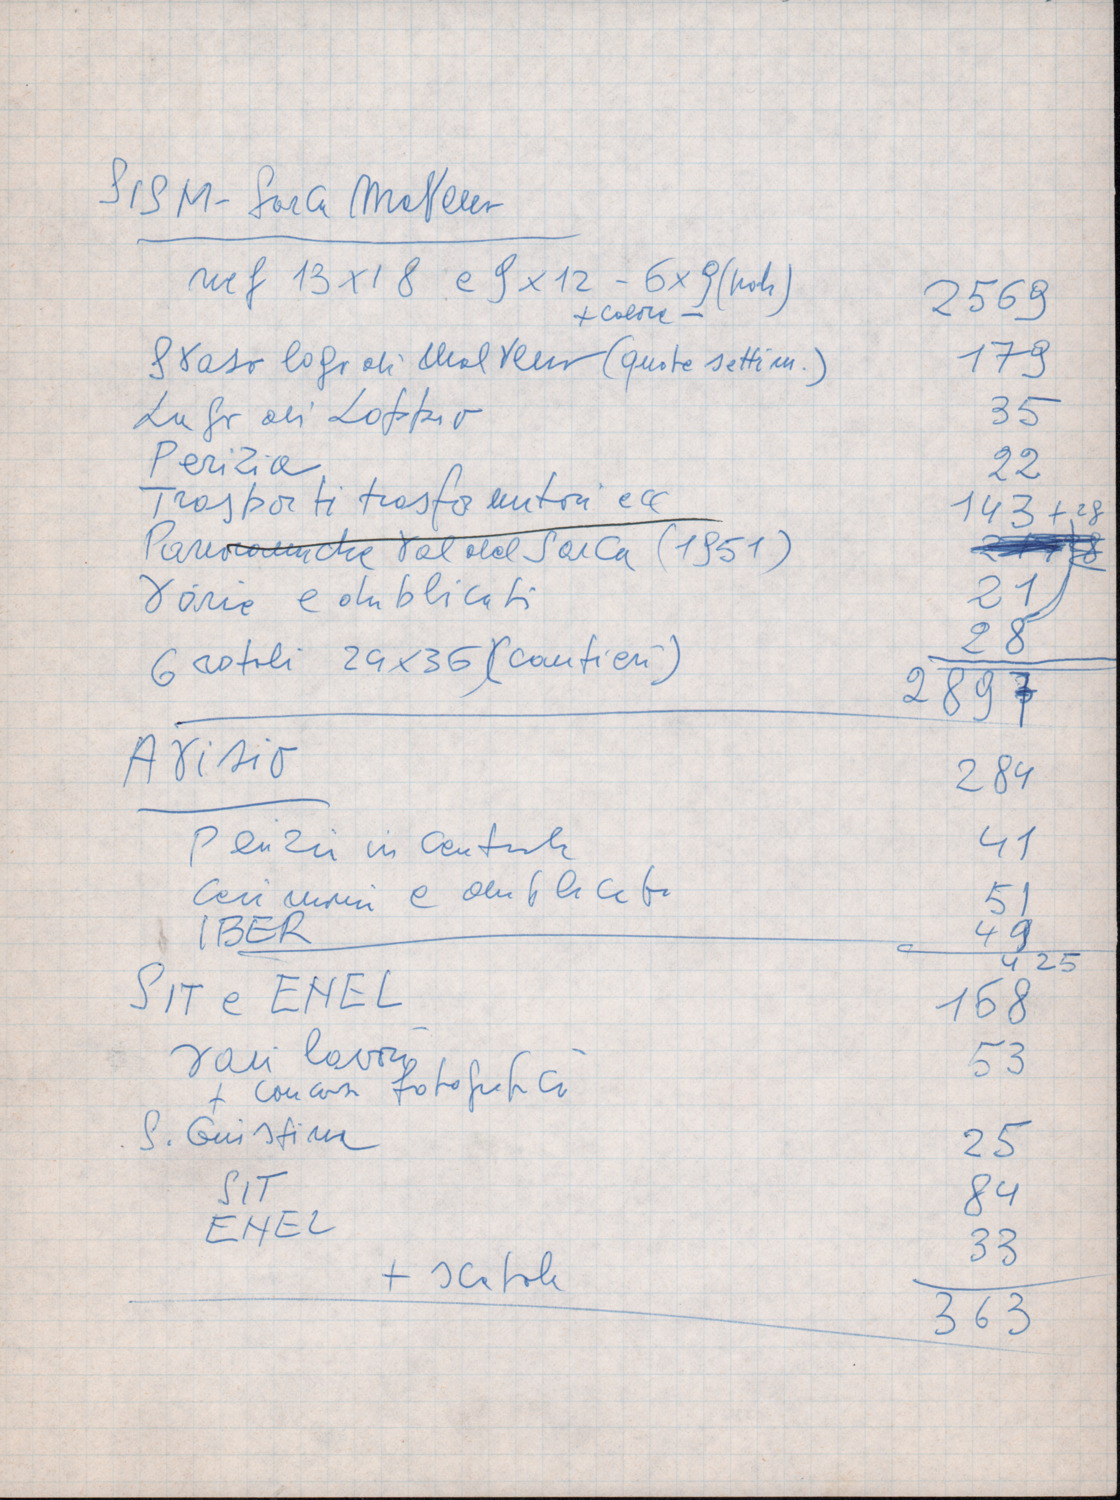 SISM - Sarca Molveno
neg 13x18 e 9x12 - 6x9 (poch) 2569
+ colore -
Svaso lago di Molveno (quote settim.) 179
Lago di Loppio 35
Perizia 22
Trasporti trasformatori ecc 143 + 28
Panoramiche Val del Sarca (1951)
Varie e dublicati 21
6 rotoli 24x36 (cantieri) 28
2897
Avisio 284
Perizie in centrale 41
Cerimonie e dublicati 51
IBER 49
425
SIT e ENEL 168
vari lavori 53
+ concorsi fotografici
S. Giustina 25
SIT 84
ENEL 33
+ scatole
363